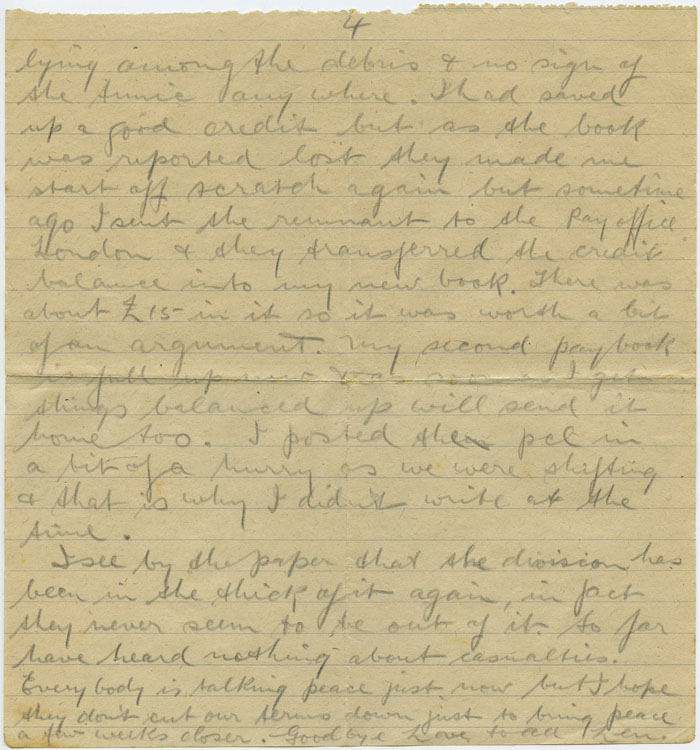 4
lying among the debris & no sign of
the tunic any where. I had saved
up a good credit but as the book
was reported lost they made me
start off scratch again but sometime
ago I sent the remnant to the Pay office
London & they transferred the credit
balance into my new book. There was
about £15 in it so it was worth a bit
of an argument. My second paybook
is full up now & as soon as I get
things balanced up will send it
home too. I posted the pcl in
a bit of a hurry as we were shifting
& that is why I didn't write at the
time.
I see by the paper that the division has
been in the thick of it again, in fact
they never seem to be out of it. So far
have heard nothing about casualties.
Everybody is talking peace just now but I hope
they don't cut our terms down just to bring peace
a few weeks closer. Goodbye Love to all Len.